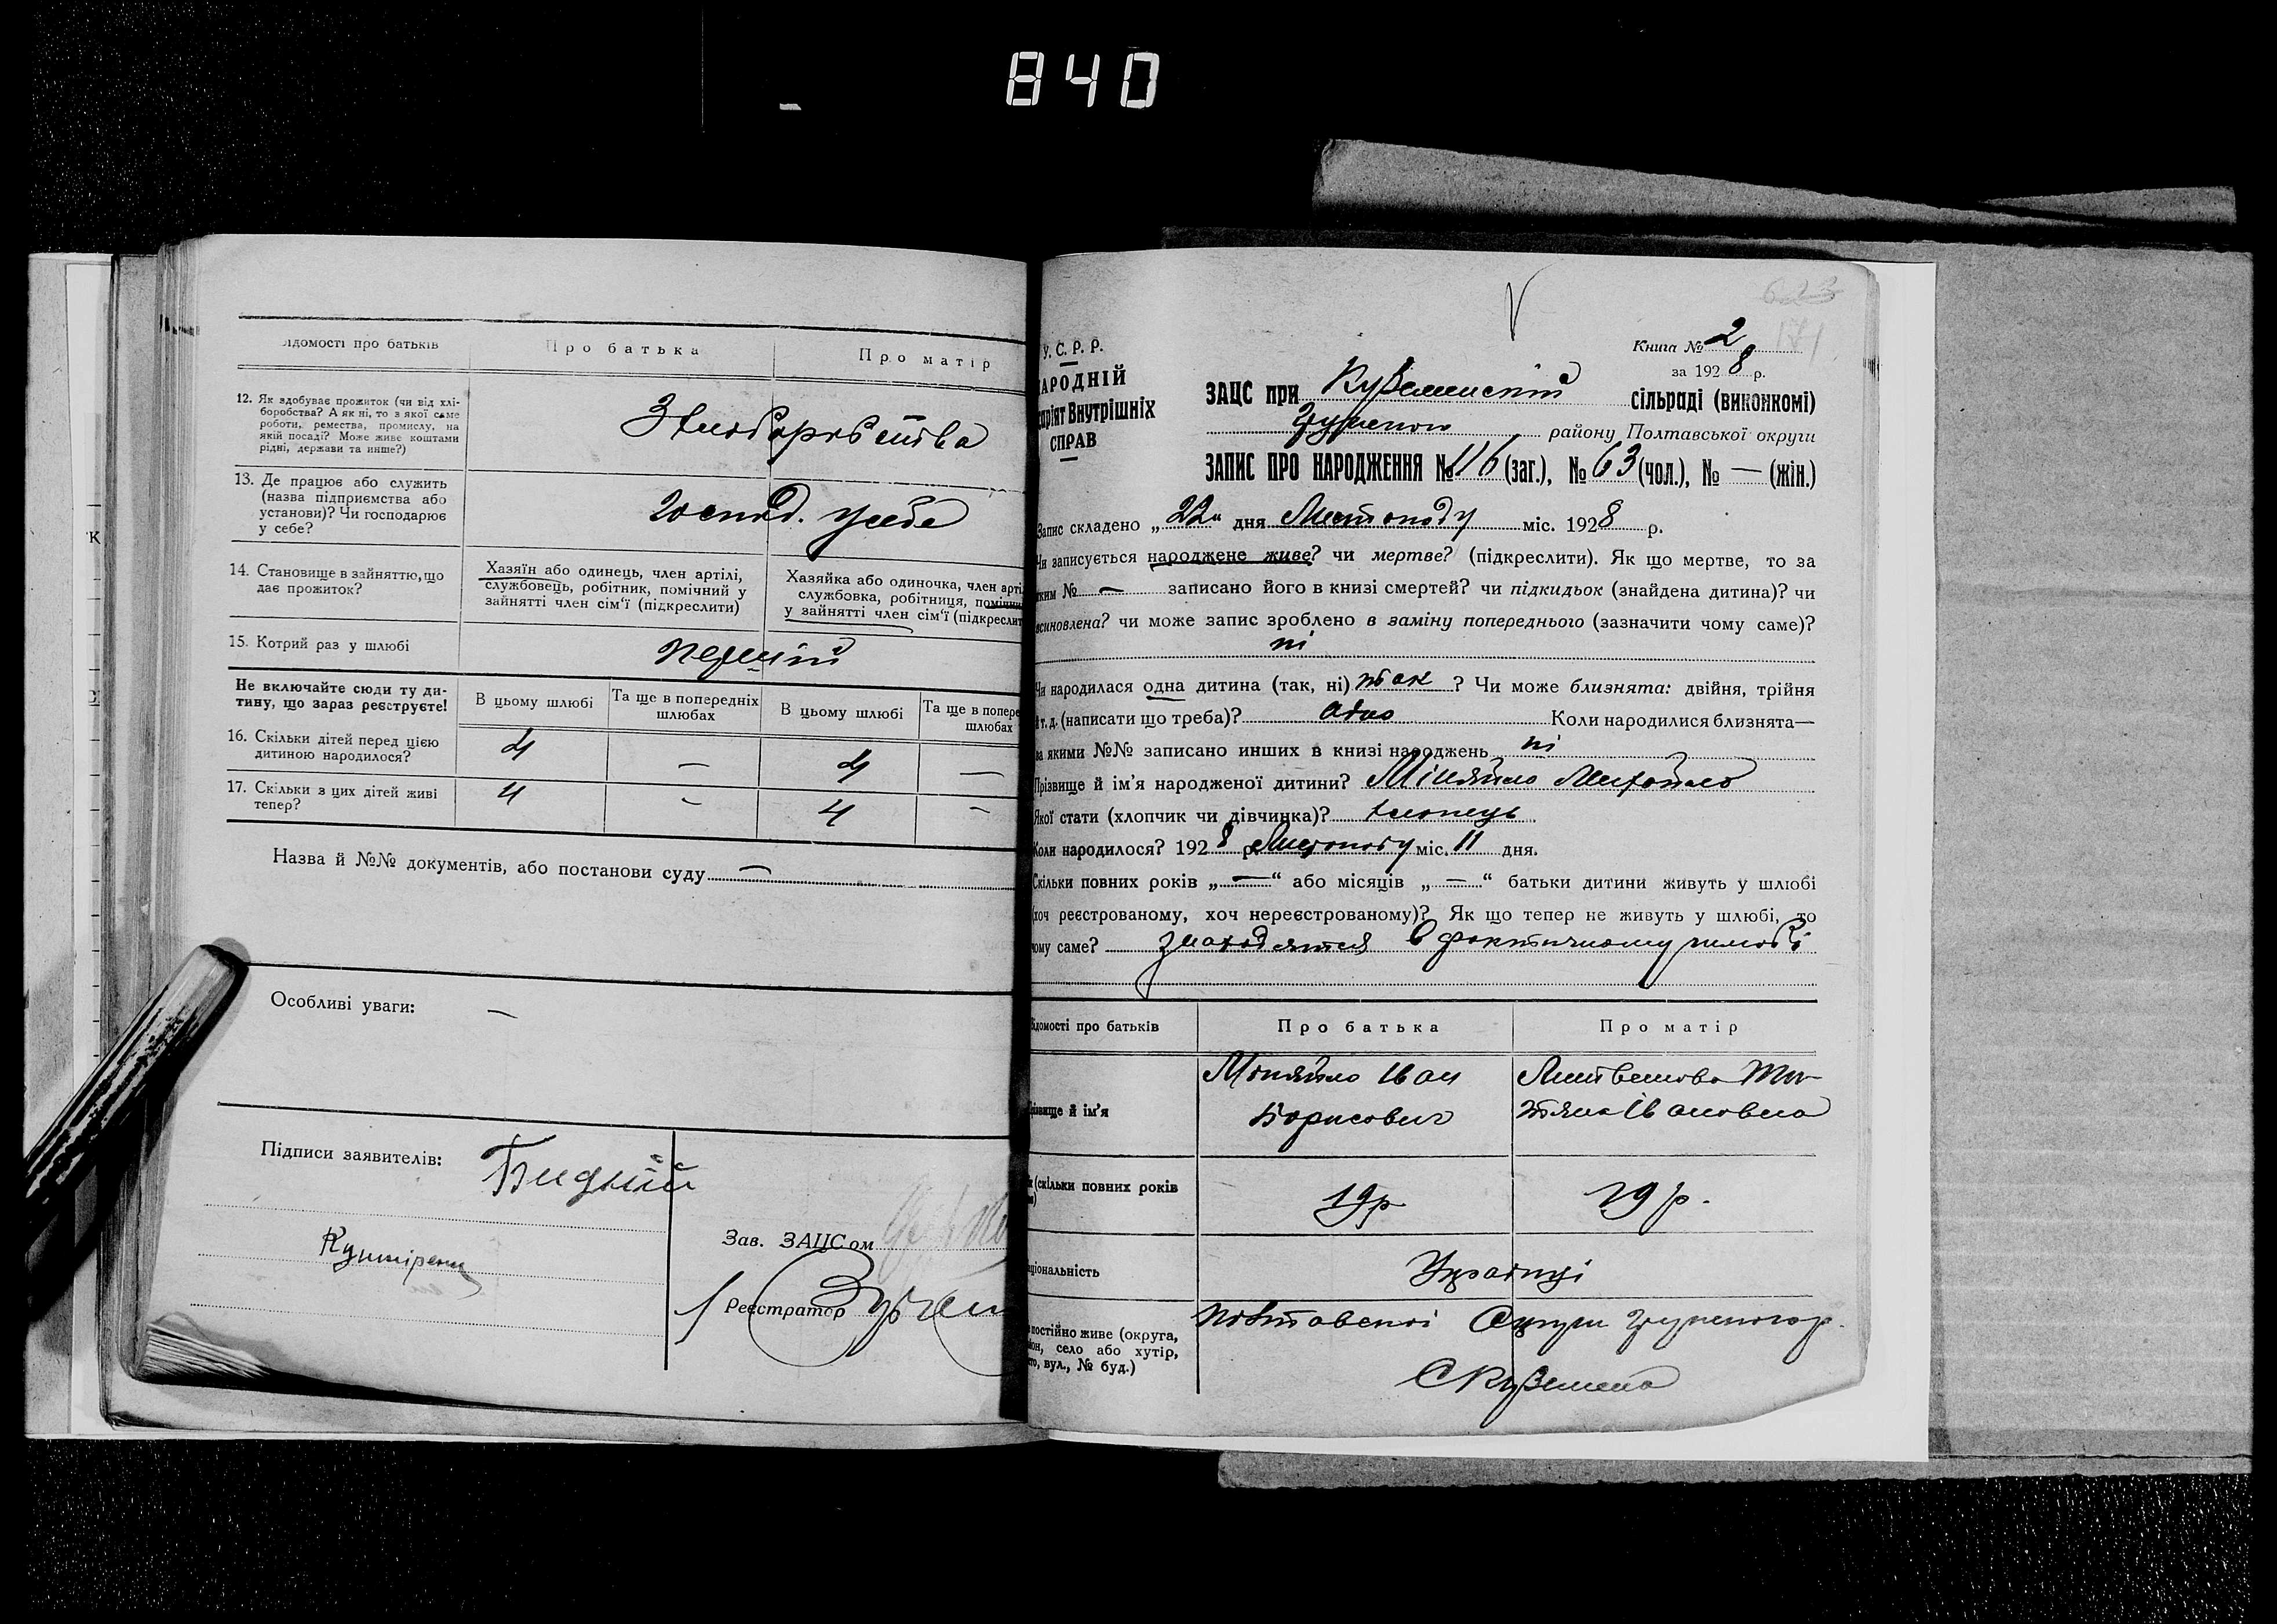 840
ідомості про батьків
Про батька
Про матір
12. Як здобуває прожиток (чи від хлі-
боробства? А як ні, то з якої саме
роботи, ремества, промислу, на
якій посаді? Може живе коштами
рідні, держави та инше?)
З хлоборобства
13. Де працює або служить
(назва підприємства або
установи)? Чи господарює
у себе?
господ. у себе
14. Становище в зайняттю, що
дає прожиток?
Хазяїн або одинець, член артілі,
службовець, робітник, помічний у
зайнятті член сім'ї (підкреслити)
Хазяйка або одиночка, член арті
службовка, робітниця, помічни
у зайнятті член сім'ї (підкреслит
15. Котрий раз у шлюбі
перший
Не включайте сюди ту ди-
тину, що зараз реєструєте!
В цьому шлюбі
Та ще в попередніх
шлюбах
В цьому шлюбі
Та ще в попере
шлюбах
16. Скільки дітей перед цією
дитиною народилося?
4 — 4 —
17. Скільки з цих дітей живі
тепер?
4 - 4 -
Назва й №№ документів, або постанови суду —
Особливі уваги: —
Підписи заявителів:
Зав. ЗАЦСом
Реєстратор
623
171
Книга № 2
за 1928 р.
У. С. Р. Р.
АРОДНІЙ
сарят Внутрішніх
СПРАВ
ЗАЦС при Куземенскій сільраді (виконкомі)
району Полтавської округи
ЗАПИС ПРО НАРОДЖЕННЯ № 116 (заг.), № 63 (чол.), № — (жін.)
Запис складено „22" дня Листопаду міс. 1928 р.
Чи записується народжене живе? чи мертве? (підкреслити). Як що мертве, то за
яким № — записано його в книзі смертей? чи підкидьок (знайдена дитина)? чи
всиновлена? чи може запис зроблено в заміну попереднього (зазначити чому саме)?
ні
Чи народилася одна дитина (так, ні) так ? Чи може близнята: двійня, трійня
й т. д. (написати що треба)? одно Коли народилися близнята—
за якими №№ записано инших в книзі народжень ні
Прізвище й ім'я народженої дитини? Міняйло Михайло
Якої стати (хлопчик чи дівчинка)? хлопець
Коли народилося? 1928 р. Листопаду міс. 11 дня.
Скільки повних років „—" або місяців „—" батьки дитини живуть у шлюбі
(хоч реєстрованому, хоч нереєстрованому)? Як що тепер не живуть у шлюбі, то
чому саме? знаходятся в фактичному шлюбі
ідомості про батьків
Про батька
Про матір
ізвище й ім'я
Міняйло Іван
Борисович
Литвенова Та-
тяна Івановна
к (скільки повних років
19 р
19 р.
ціональність
Украінці
постійно живе (округа,
йон, село або хутір,
сто, вул., № буд.)
Полтавскоі Округи
С Куземена